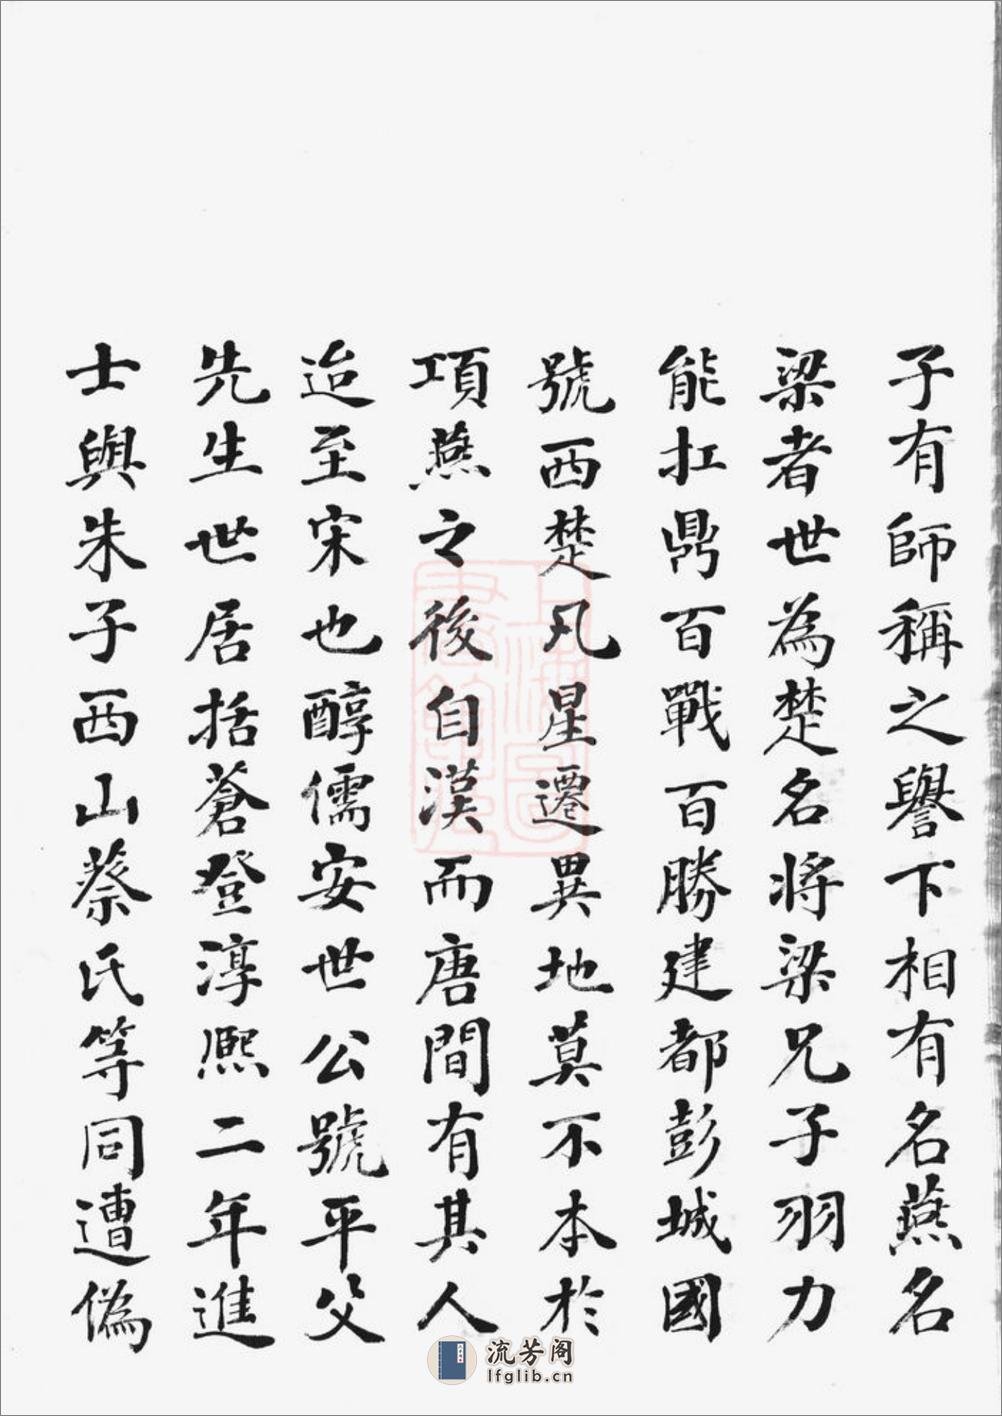 子有師稱之譽下相有名燕名
梁者世為楚名將梁兄子羽力
能扛鼎百戰百勝建都彭城國
號西楚凡星遷異地莫不本於
項燕之後自漢而唐間有其人
迨至宋也醇儒安世公號平父
先生世居括蒼登淳熙二年進
士與朱子西山蔡氏等同遭偽
上海圖書館藏
流芳阁
lfglib.cn